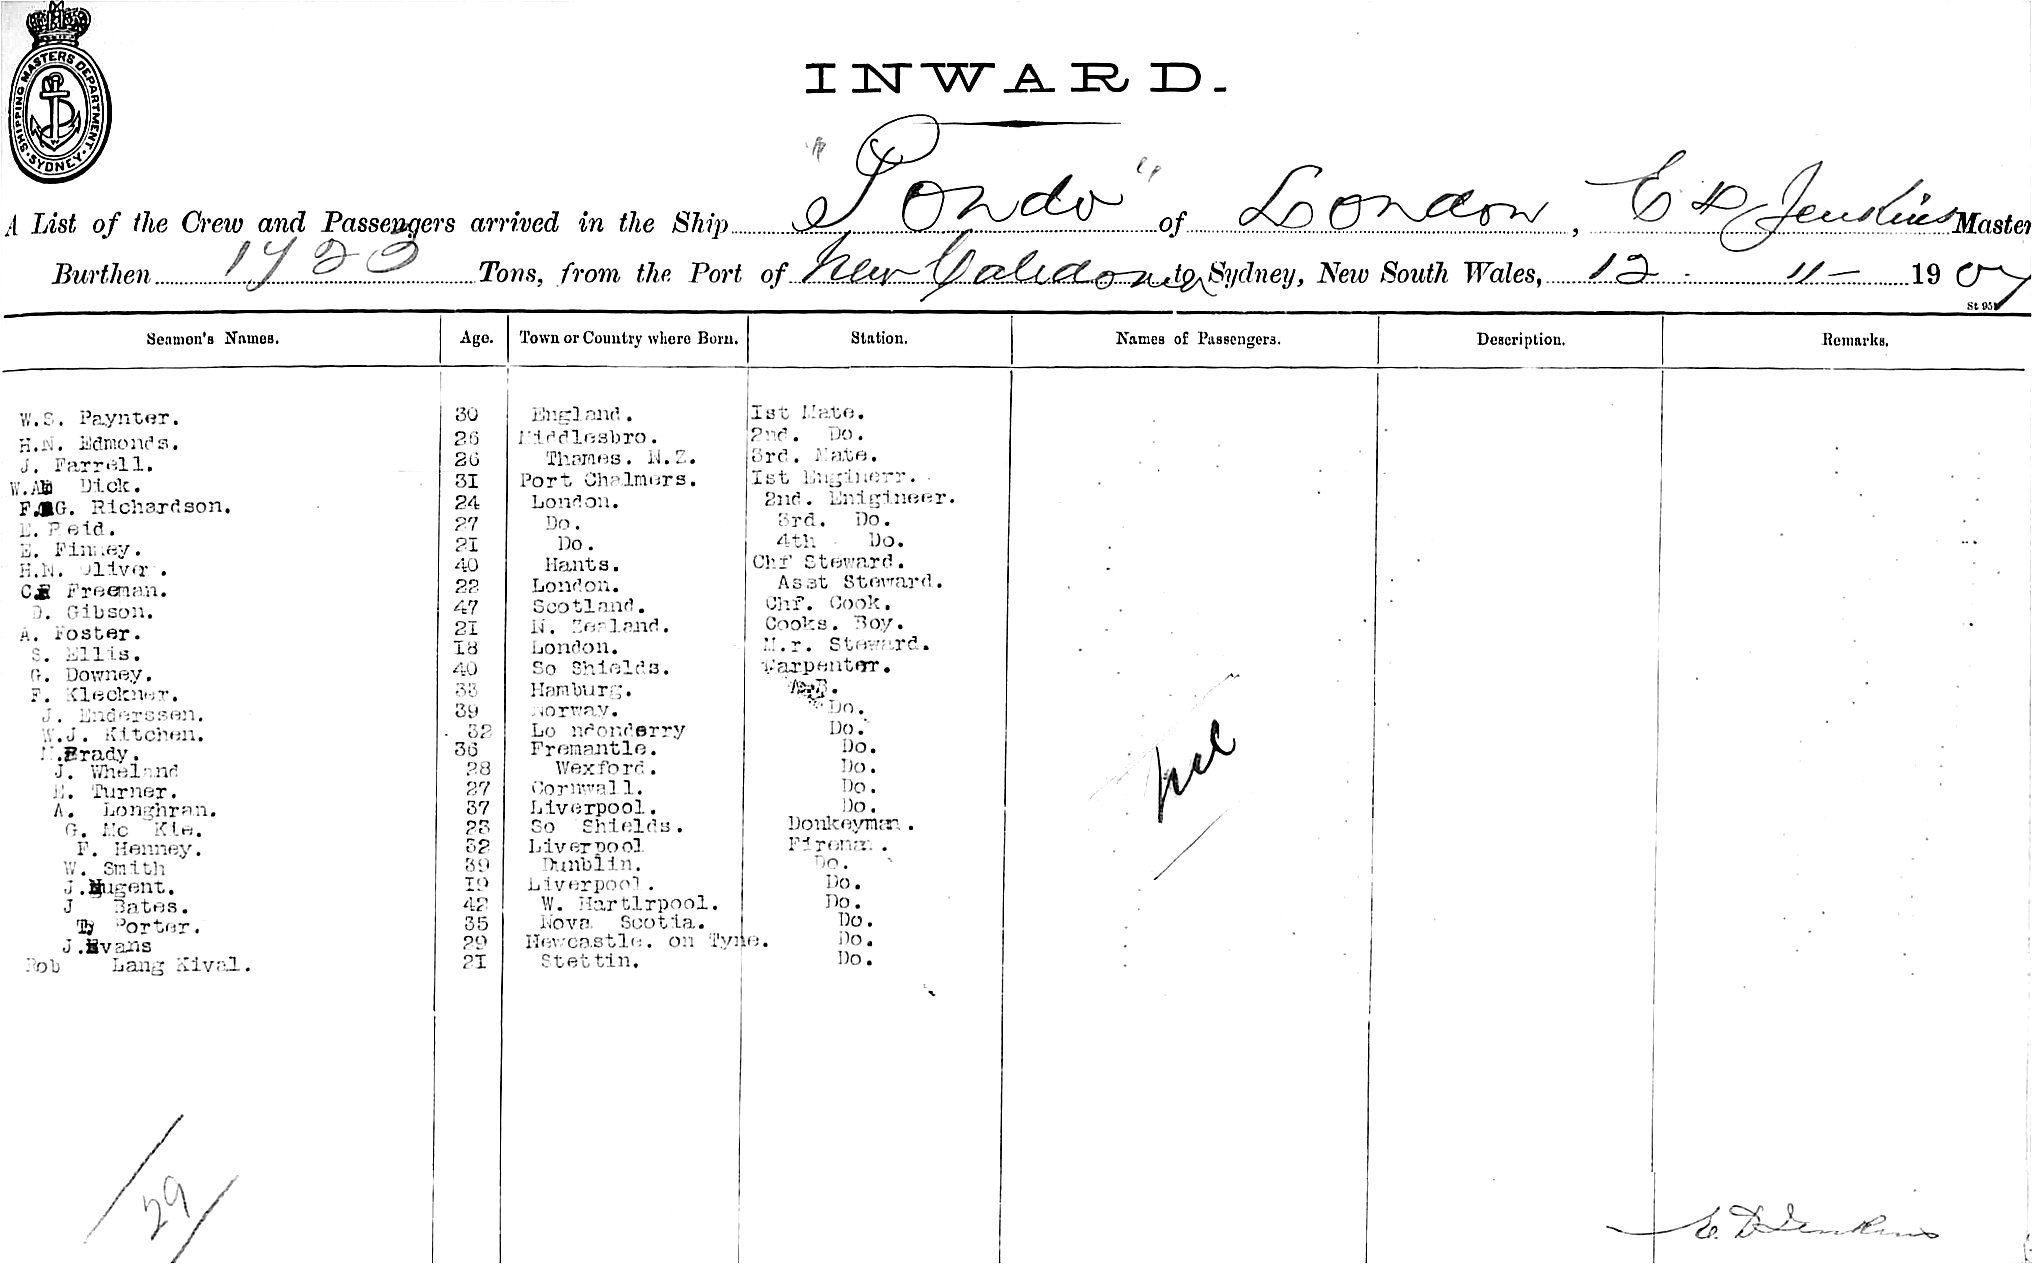 SHIPPING MASTERS DEPARTMENT. SYDNEY.
INWARD.
A List of the Crew and Passengers arrived in the Ship "Pondo" of London, E D Jenkins Master
Burthen Tons, from the Port of New Caledonia to Sydney, New South Wales, 12 - 11 - 1907
St 95
Seamen's Names. Age. Town or Country where Born. Station. Names of Passengers. Description. Remarks.
W.S. Paynter. 30 England. Ist Mate.
H.N. Edmonds. 26 Middlesbro. 2nd. Do.
J. Farrell. 26 Thames. N.Z. 3rd. Mate.
W.A Dick. 31 Port Chalmers. Ist Enginerr.
F. G. Richardson. 24 London. 2nd. Enigineer.
E. Reid. 27 Do. 3rd. Do.
E. Finney. 21 Do. 4th Do.
H.N. Oliver. 40 Hants. Chf Steward.
C Freeman. 22 London. Asst Steward.
D. Gibson. 47 Scotland. Chf. Cook.
A. Foster. 21 N. Zealand. Cooks. Boy.
S. Ellis. 18 London. M.r. Steward.
G. Downey. 40 So Shields. Carpenter.
F. Kleckner. 33 Hamburg. A.B.
J. Enderssen. 39 Norway. Do.
W.J. Kitchen. 32 Lo ndonderry Do.
M.Brady. 36 Fremantle. Do.
J. Wheland 28 Wexford. Do.
E. Turner. 27 Cornwall. Do.
A. Longhran. 37 Liverpool. Do.
G. Mc Kie. 23 So Shields. Donkeyman.
F. Henney. 32 Liverpool Fireman.
W. Smith 39 Dunblin. Do.
J.Nugent. 19 Liverpool. Do.
J Bates. 42 W. Hartlrpool. Do.
Porter. 35 Nova Scotia. Do.
J.Evans 29 Newcastle. on Tyne. Do.
Rob Lang Kival. 21 Stettin. Do.
nil
29
E. D Jenkins